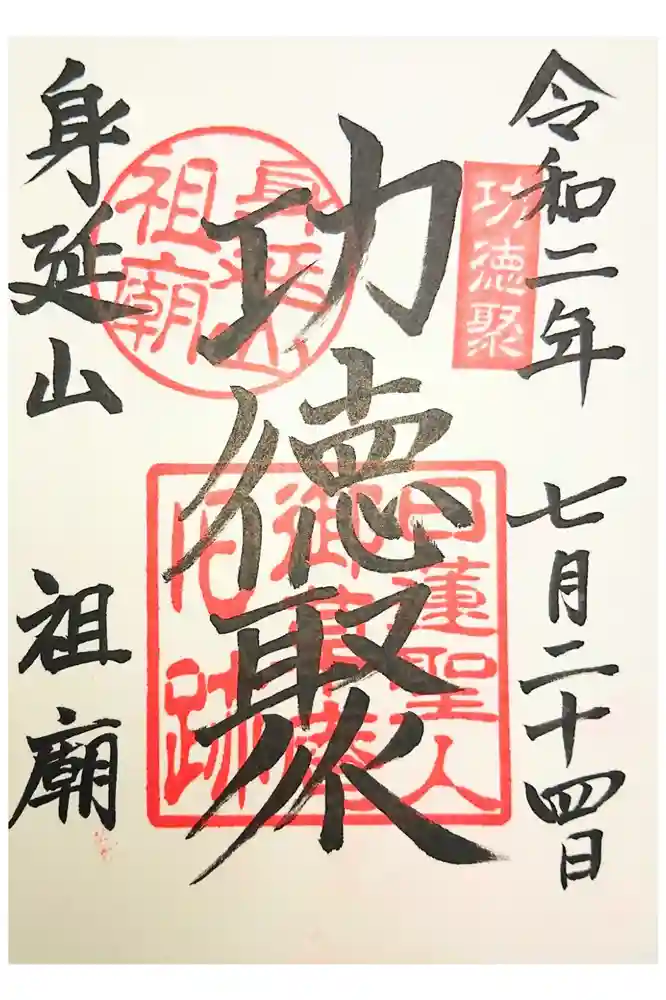 令和二年 七月二十四日
功徳聚
功徳聚
身延山
祖廟
日蓮聖人
御草庵
旧跡
身延山 祖廟